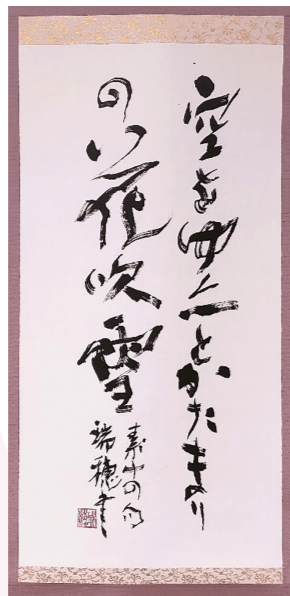 空をゆく一とかたまり
の花吹雪
素十の句
瑞穂書